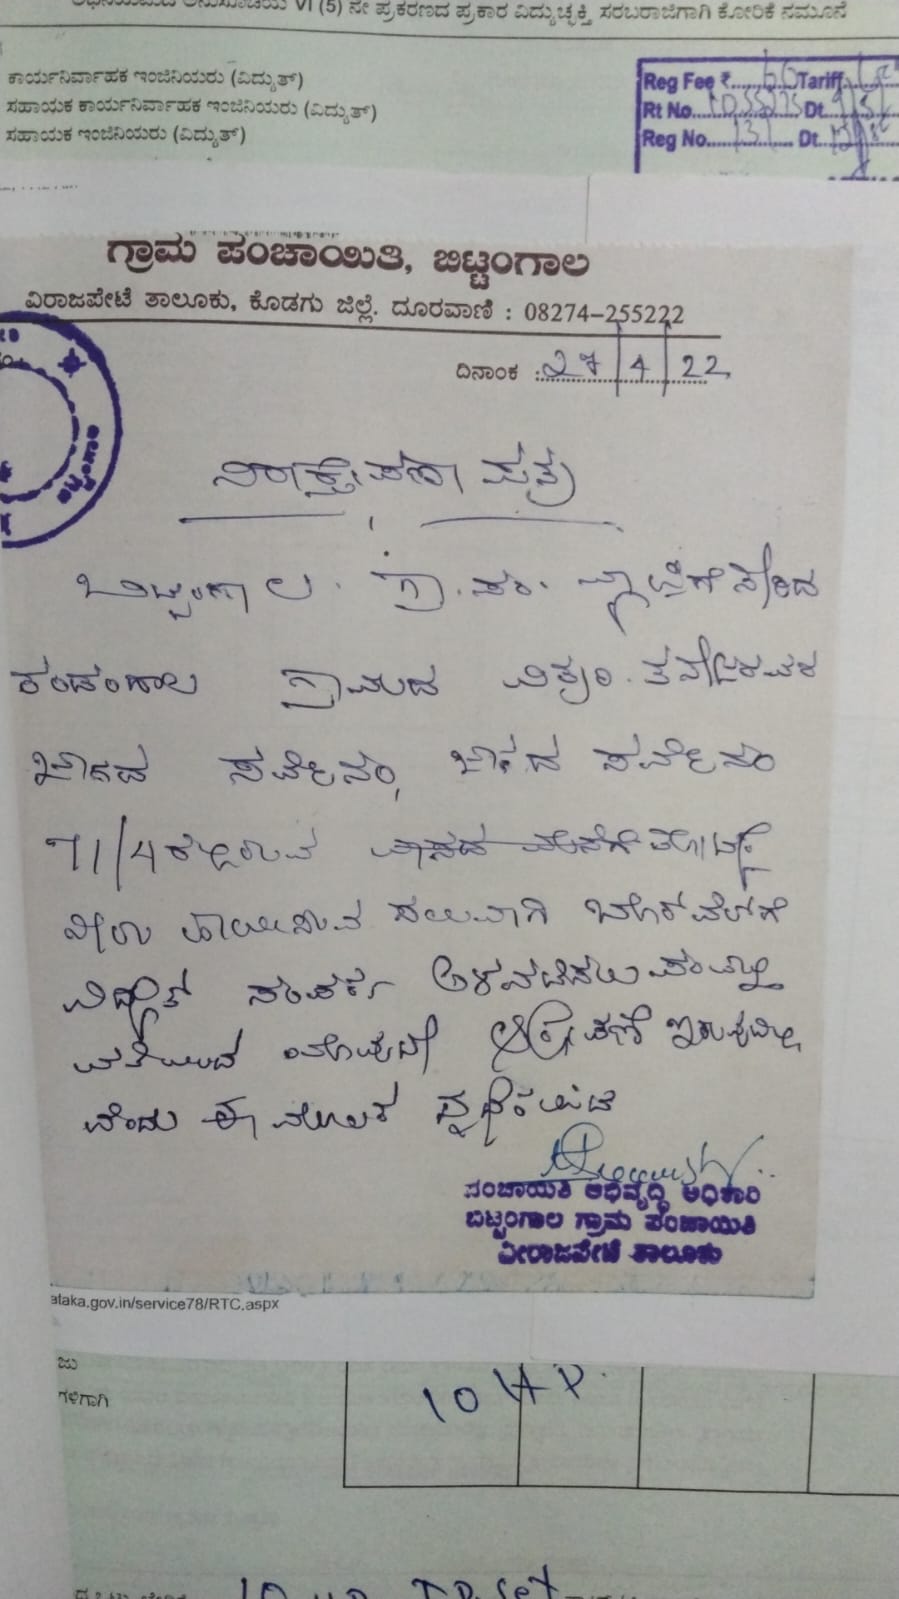 VI (5) ನೇ ಪ್ರಕರಣದ ಪ್ರಕಾರ ವಿದ್ಯುಚ್ಛಕ್ತಿ ಸರಬರಾಜಿಗಾಗಿ ಕೋರಿಕೆ ನಮೂನೆ
ಕಾರ್ಯನಿರ್ವಾಹಕ ಇಂಜಿನಿಯರು (ವಿದ್ಯುತ್)
ಸಹಾಯಕ ಕಾರ್ಯನಿರ್ವಾಹಕ ಇಂಜಿನಿಯರು (ವಿದ್ಯುತ್)
ಸಹಾಯಕ ಇಂಜಿನಿಯರು (ವಿದ್ಯುತ್)
Reg Fee ₹ 60 Tariff
Rt No. Dt
Reg No. 131 Dt
ಗ್ರಾಮ ಪಂಚಾಯಿತಿ, ಬಿಟ್ಟಂಗಾಲ
ವಿರಾಜಪೇಟೆ ತಾಲೂಕು, ಕೊಡಗು ಜಿಲ್ಲೆ. ದೂರವಾಣಿ : 08274-255222
ದಿನಾಂಕ : 27/4/22
ನಿರಾಕ್ಷೇಪಣಾ ಪತ್ರ
ಬಿಟ್ಟಂಗಾಲ ಗ್ರಾ.ಪಂ. ವ್ಯಾಪ್ತಿಗೆ ಸೇರಿದ
ಕಂಡಂಗಾಲ ಗ್ರಾಮದ
ಸರ್ವೆ ನಂ, ಸರ್ವೆ ನಂ
71/4 ರಲ್ಲಿರುವ
ನೀರು ಹಾಯಿಸುವ ಸಲುವಾಗಿ ಬೋರ್‌ವೆಲ್‌ಗೆ
ವಿದ್ಯುತ್ ಸಂಪರ್ಕ ಅಳವಡಿಸಲು ಪಂಚಾಯ್ತಿ
ವತಿಯಿಂದ ಯಾವುದೇ ಆಕ್ಷೇಪಣೆ ಇರುವುದಿಲ್ಲ
ವೆಂದು ಈ ಮೂಲಕ ದೃಢೀಕರಿಸಿದೆ
ಪಂಚಾಯಿತಿ ಅಭಿವೃದ್ಧಿ ಅಧಿಕಾರಿ
ಬಿಟ್ಟಂಗಾಲ ಗ್ರಾಮ ಪಂಚಾಯಿತಿ
ವೀರಾಜಪೇಟೆ ತಾಲೂಕು
ataka.gov.in/service78/RTC.aspx
ಜು
ಗಳಿಗಾಗಿ
10 HP.
10 HP IP Set